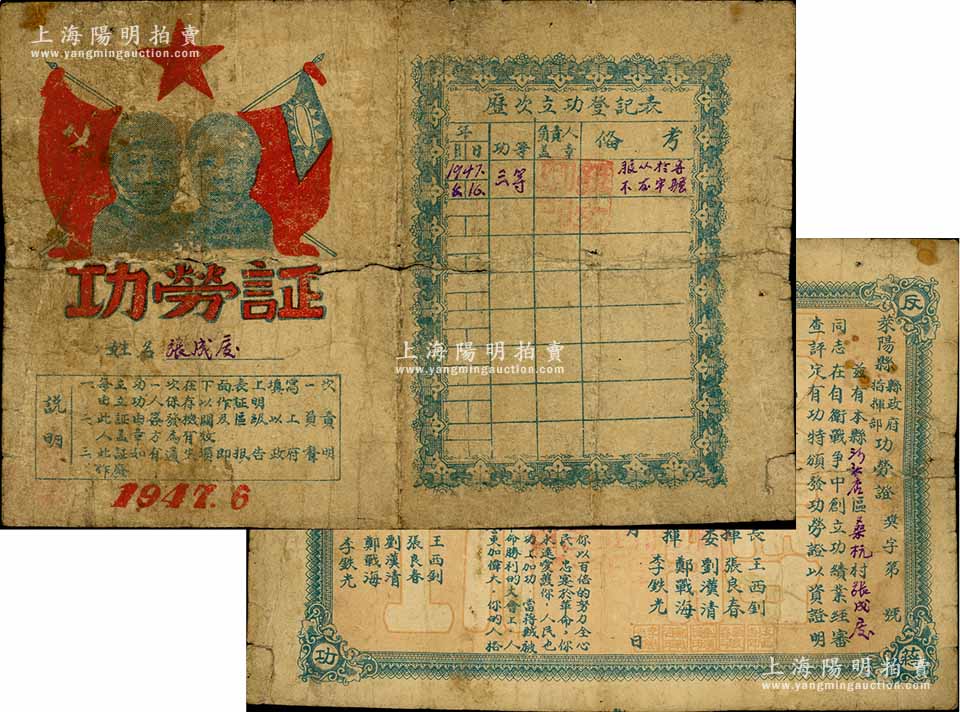 上海陽明拍賣
www.yangmingauction.com
上海陽明拍賣
www.yangmingauction.com
功勞証
姓名 張成慶
說明
一、每立功一次在下面表上填寫一次
由立功人保存以作証明
二、此証由簽發機關及區級以上負責
人蓋章方為有效
三、此証如有遺失須即报告政府聲明
作廢
1947.6
歷次立功登記表
年 月 日
功等
負責人蓋章
俻考
1947.
16.
三等
上海陽明拍賣
www.yangmingauction.com
上海陽明拍賣
www.yangmingauction.com
反
蔣
功
萊陽縣 縣政府 指揮部 功勞證 奬字第 號
茲有本縣 區 村 張成慶
同志在自衛戰争中創立功績業經審
查評定有功特頒發功勞證以資證明
長 王西到
揮 張良春
委 劉漢清
揮 鄭戰海
李鉄光
月 日
你以百倍的努力全心
民、忠案於革命，你
永遠愛護你，人民也
功上加功，當蔣賊被
命勝利的大會上，人
更加偉大，你的人格
王西到
張良春
劉漢清
鄭戰海
李鉄光
上海陽明拍賣
www.yangmingauction.com